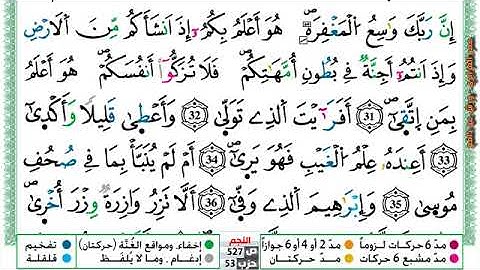 إِنَّ رَبَّكَ وَٰسِعُ اُ۬لْمَغْفِرَةِۖ هُوَ أَعْلَمُ بِكُمُۥٓ إِذَ اَنشَأَكُم مِّنَ اَ۬لَارْضِ
وَإِذَ اَنتُمُۥٓ أَجِنَّةٞ فِے بُطُونِ أُمَّهَٰتِكُمْۖ فَلَا تُزَكُّوٓاْ أَنفُسَكُمْۖ هُوَ أَعْلَمُ
بِمَنِ اِ۪تَّق۪ىٰٓۖ 31 أَفَرَٰٓيْتَ اَ۬لذِے تَوَلّ۪ىٰ 32 وَأَعْط۪ىٰ قَلِيلاٗ وَأَكْد۪ىٰٓ
33 أَعِندَهُۥ عِلْمُ اُ۬لْغَيْبِ فَهُوَ يَر۪ىٰٓ 34 أَمْ لَمْ يُنَبَّأْ بِمَا فِے صُحُفِ
مُوس۪ىٰ 35 وَإِبْرَٰهِيمَ اَ۬لذِے وَفّ۪ىٰٓ 36 أَلَّا تَزِرُ وَازِرَةٞ وِزْرَ أُخْر۪ىٰ
مدّ 6 حركات لزوماً مدّ 2 أو 4 أو 6 جوازاً النجم ص 527 إخفاء، ومواقع الغُنَّة (حركتان) تفخيم
مدّ مشبع 6 حركات مدّ حركتان حزب 53 إدغام، وما لا يُلفَظ قلقلة